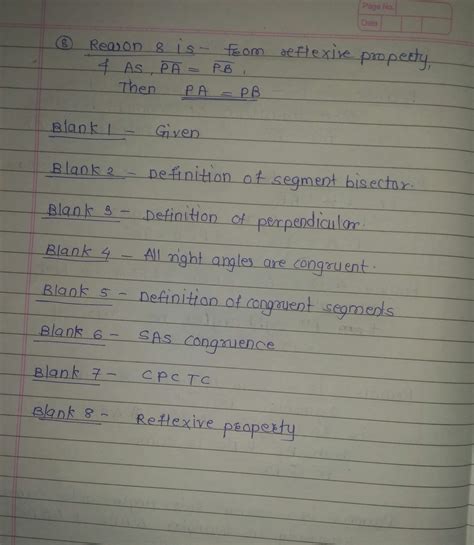 Page No.
Date
⑧ Reason 8 is - From reflexive property,
& As, PA = PB,
Then PA = PB
Blank 1 - Given
Blank 2 - Definition of segment bisector.
Blank 3 - Definition of perpendicular.
Blank 4 - All right angles are congruent.
Blank 5 - Definition of congruent segments
Blank 6 - SAS congruence
Blank 7 - CPCTC
Blank 8 - Reflexive property